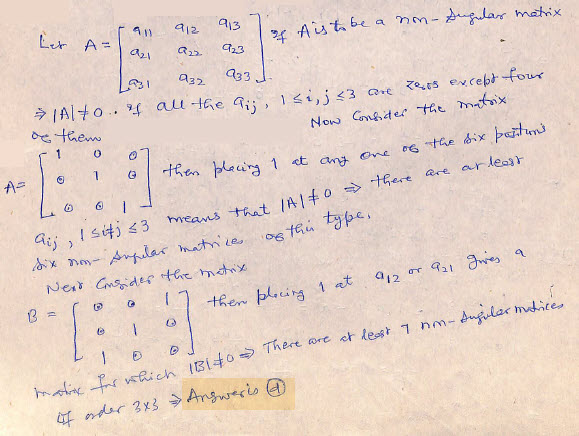 Let A = [ a11 a12 a13
a21 a22 a23
a31 a32 a33 ] If A is to be a non-singular matrix
⇒ |A| ≠ 0. If all the aij, 1 ≤ i, j ≤ 3 are zeros except four
of them Now Consider the matrix
A = [ 1 0 0
0 1 0
0 0 1 ] then placing 1 at any one of the six positions
aij, 1 ≤ i≠j ≤ 3 means that |A| ≠ 0 ⇒ there are at least
six non-singular matrices of this type.
Next Consider the matrix
B = [ 0 0 1
0 1 0
1 0 0 ] then placing 1 at a12 or a21 gives a
matrix for which |B| ≠ 0 ⇒ There are at least 7 non-singular matrices
of order 3x3 ⇒ Answer is